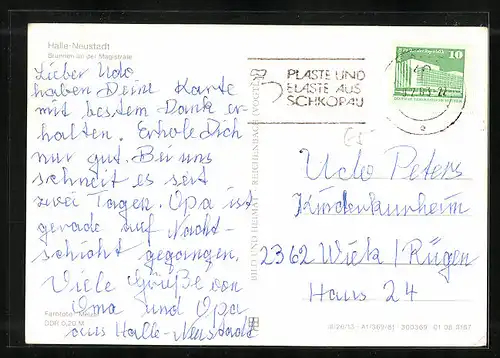 Halle-Neustadt
Brunnen an der Magistrale
Lieber Udo
haben Deine Karte
mit bestem Dank er-
halten. Erhole Dich
nur gut. Bei uns
schneit es seit
zwei Tagen. Opa ist
gerade auf Nacht-
schicht gegangen.
Viele Grüße von
Oma und Opa
aus Halle-Neustadt
DDR 0,20 M
BILD UND HEIMAT REICHENBACH (VOGTL)
PLASTE UND
ELASTE AUS
SCHKOPAU
10
Udo Peters
Kinderkurheim
2362 Wiek/Rügen
Haus 24